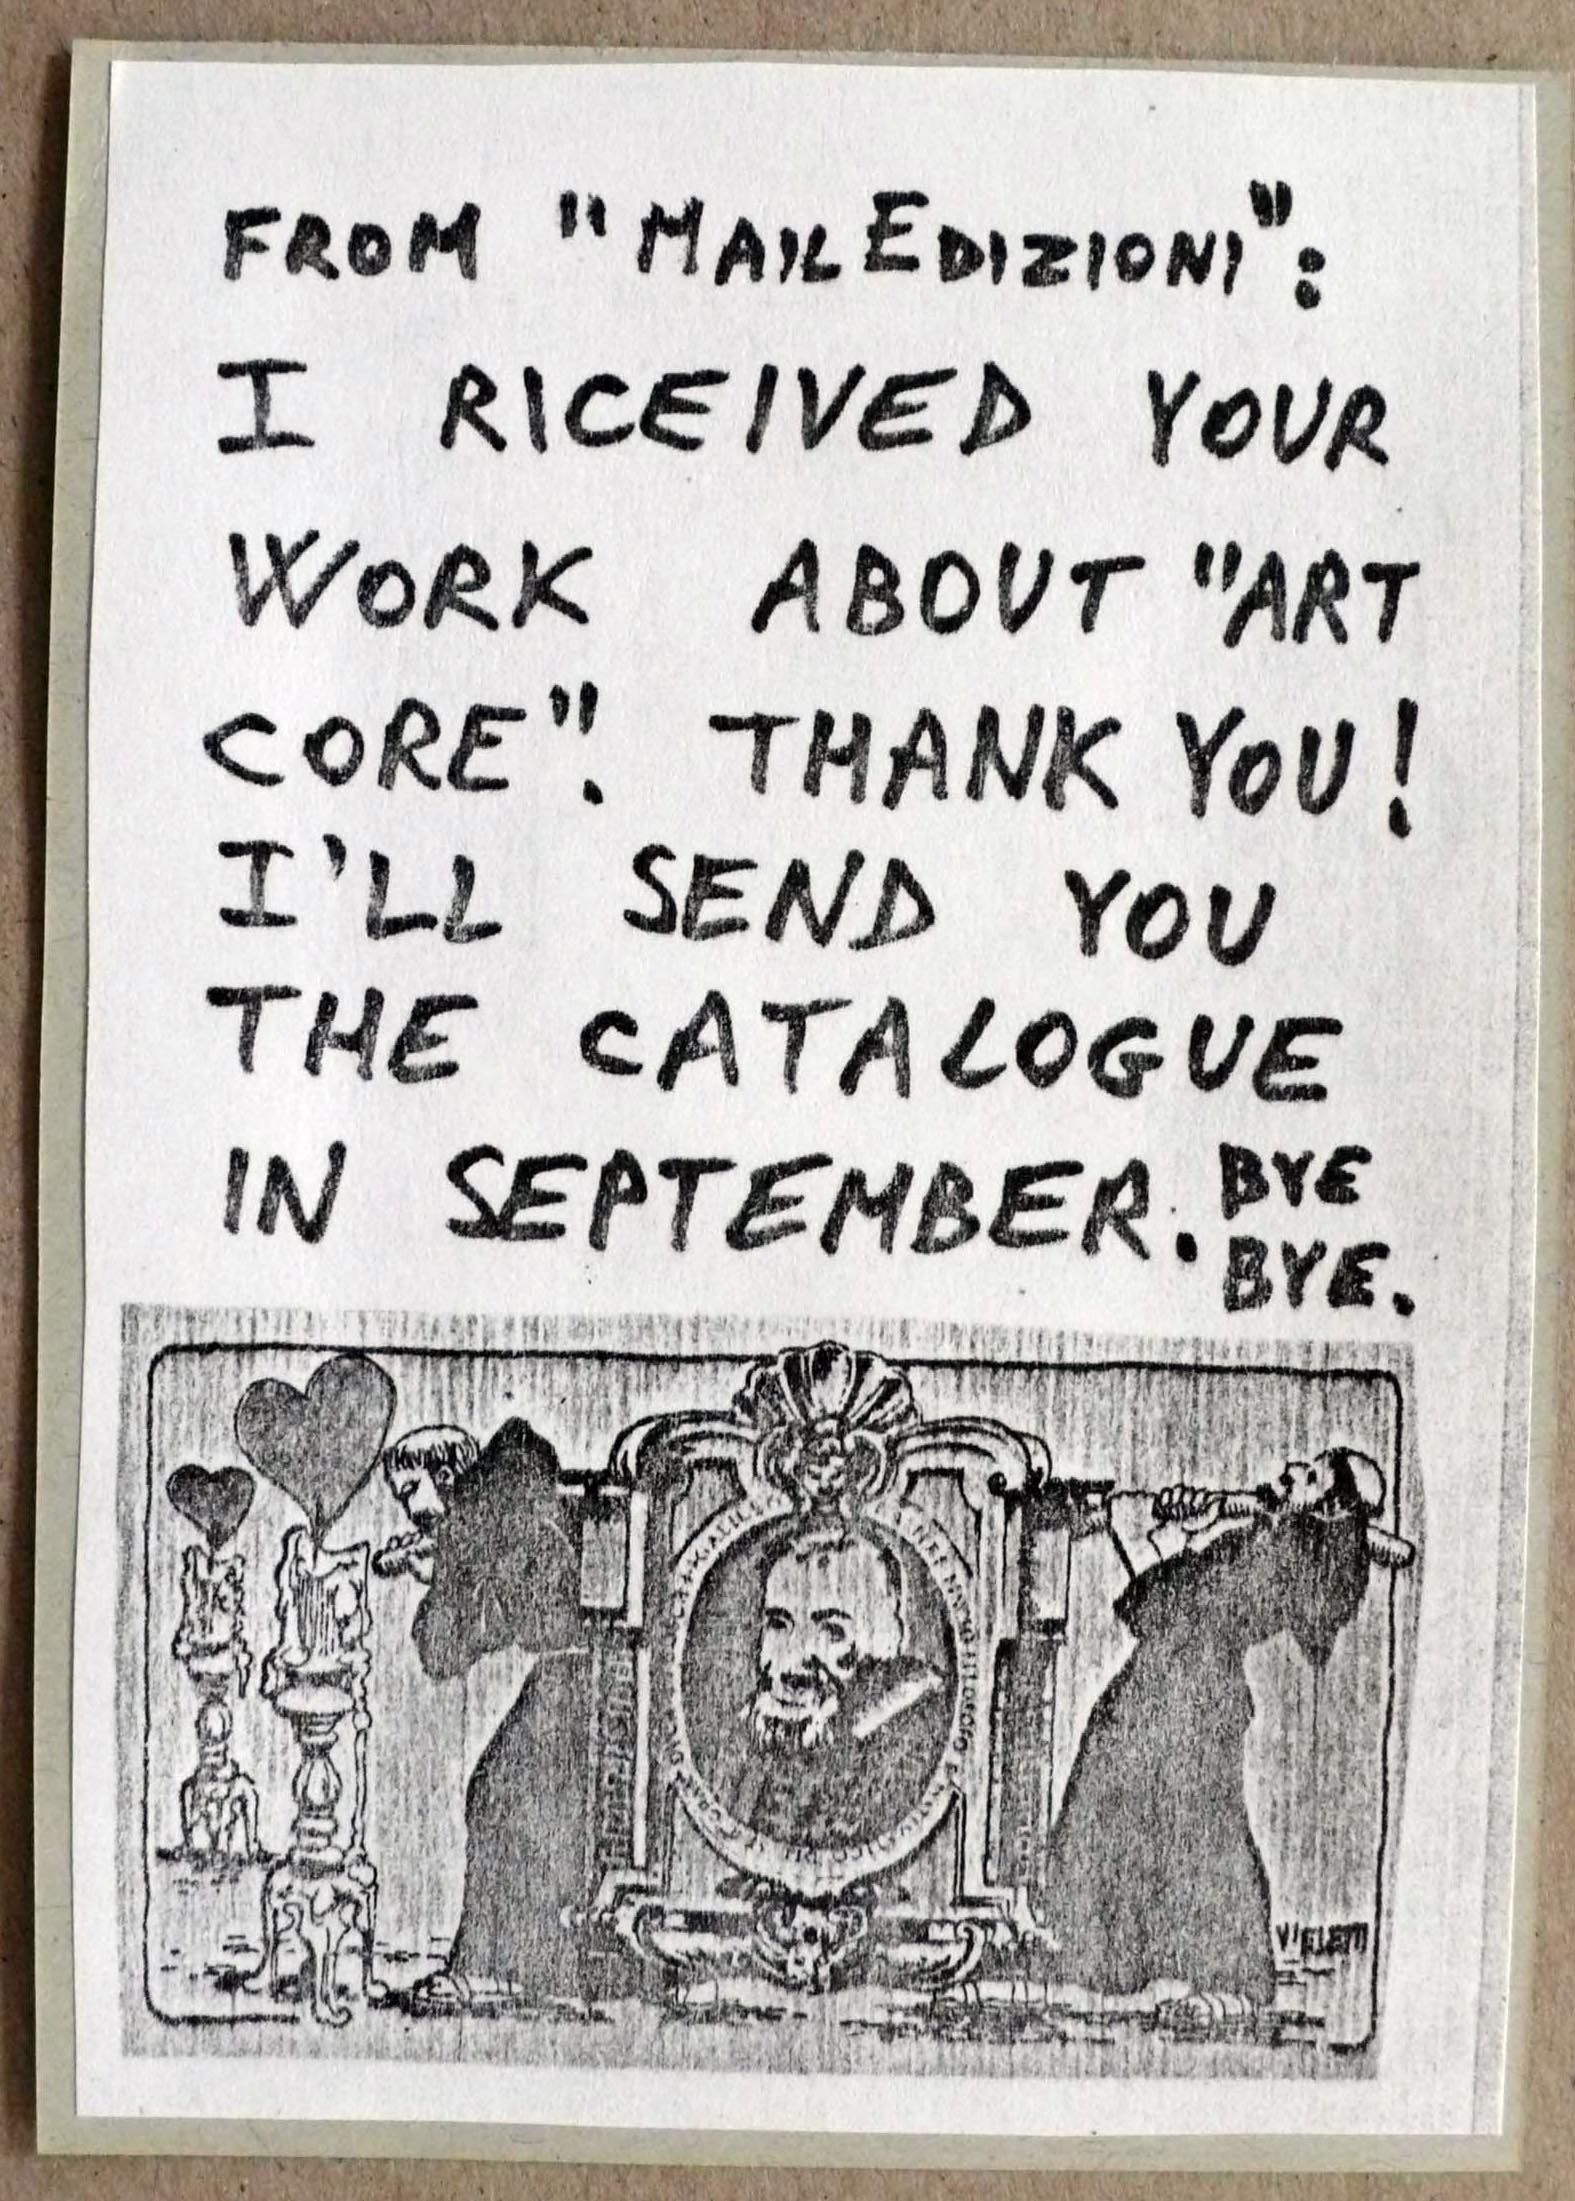 FROM "MAILEDIZIONI":
I RICEIVED YOUR
WORK ABOUT "ART
CORE". THANK YOU!
I'LL SEND YOU
THE CATALOGUE
IN SEPTEMBER. BYE
BYE.